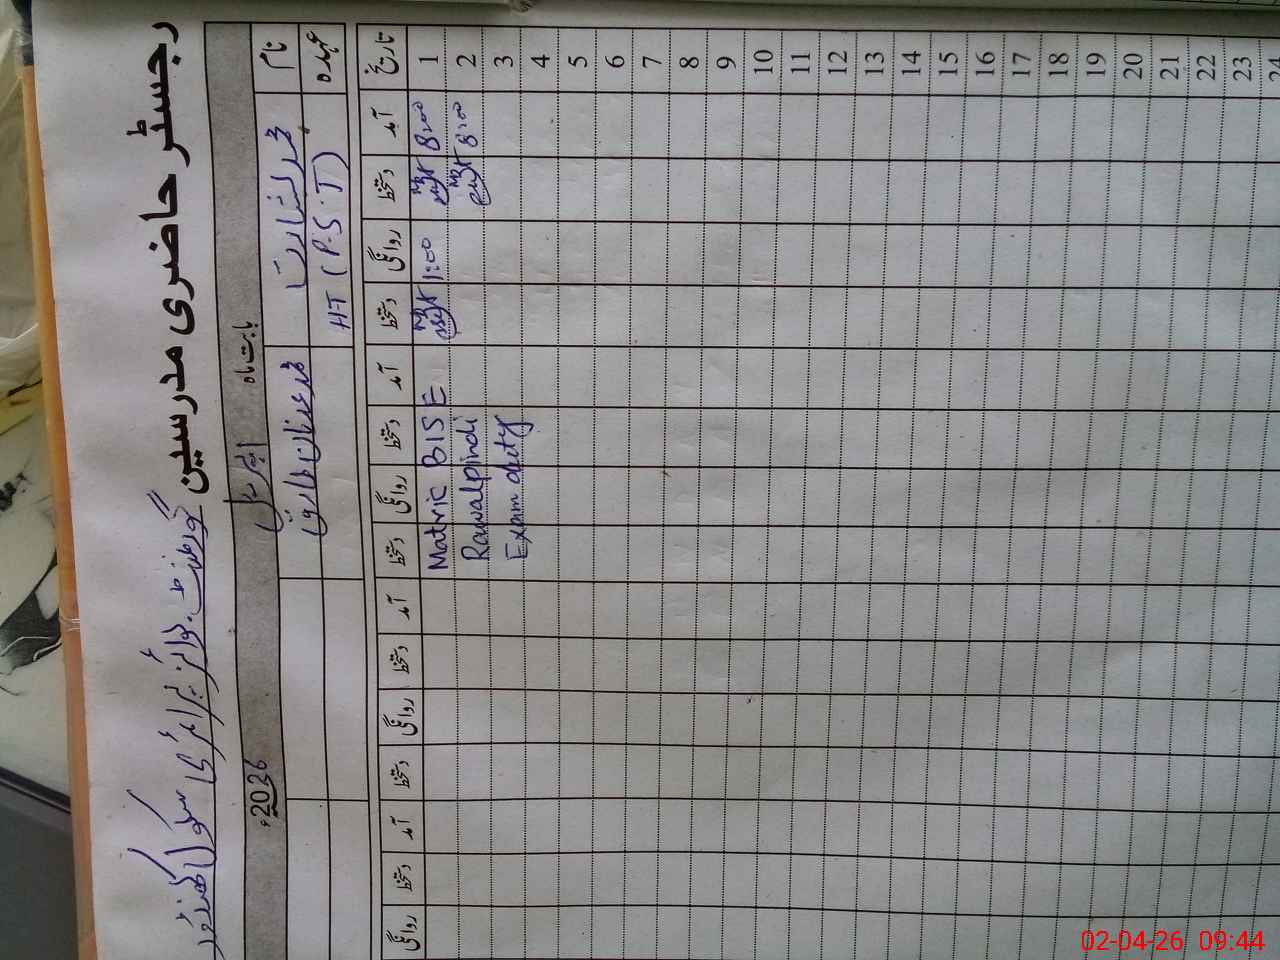 رجسٹر حاضری مدرسین گورنمنٹ بوائز پرائمری سکول
بابت ماہ اپریل 2026ء
نام محمد بشارت محمد عدنان طارق
عہدہ HT (P.S.T)
تاریخ آمد دستخط روانگی دستخط آمد دستخط روانگی دستخط آمد دستخط روانگی دستخط آمد دستخط روانگی
1 8:00 1:00 Matric BISE
2 8:00 Rawalpindi
3 Exam duty
4
5
6
7
8
9
10
11
12
13
14
15
16
17
18
19
20
21
22
23
24
02-04-26 09:44